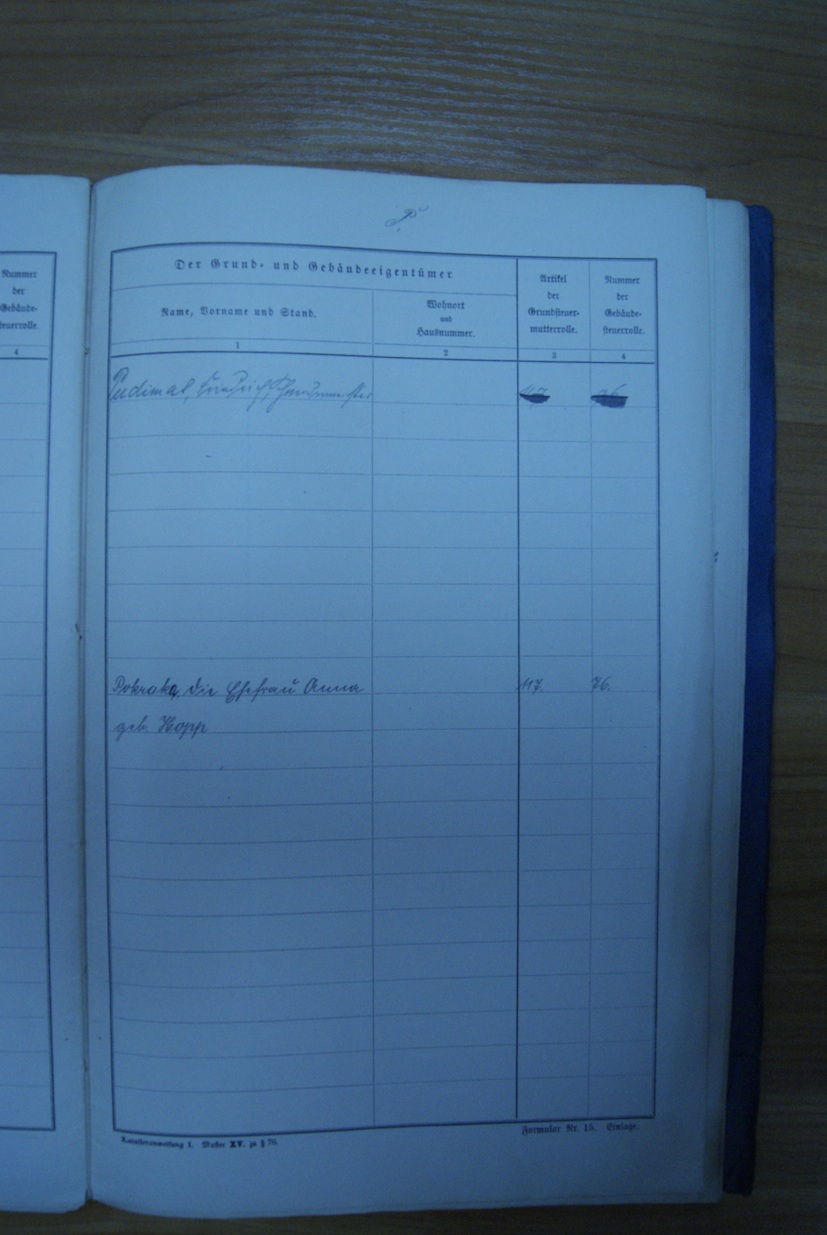 Nummer
der
Gebäude-
steuerrolle.
4
P.
Der Grund- und Gebäudeeigentümer
Name, Vorname und Stand.
Wohnort
und
Hausnummer.
Artikel
der
Grundsteuer-
mutterrolle.
Nummer
der
Gebäude-
steuerrolle.
1
2
3
4
Pudimat, Friedrich,
Pokraka, die Ehefrau Anna 117. 76.
geb. Hopp
Katasteranweisung I. Muster XV. zu § 76.
Formular Nr. 15. Einlage.